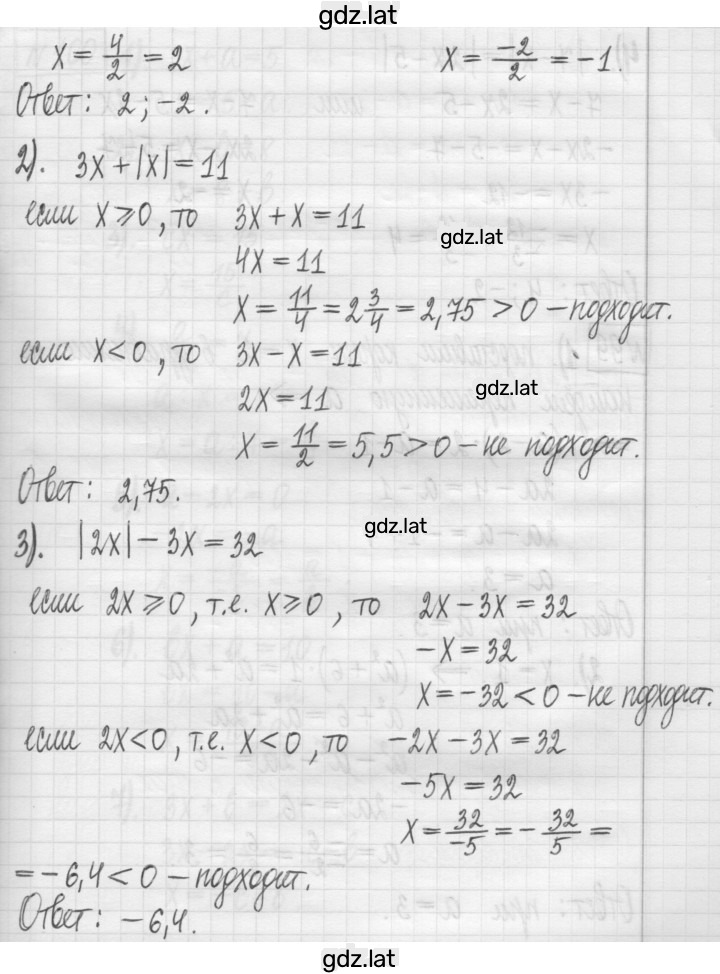 gdz.lat
x = 4/2 = 2 x = -2/2 = -1.
Ответ: 2; -2.
2). 3x + |x| = 11
если x ⩾ 0, то 3x + x = 11
gdz.lat
4x = 11
x = 11/4 = 2 3/4 = 2,75 > 0 – подходит.
если x < 0, то 3x - x = 11
gdz.lat
2x = 11
x = 11/2 = 5,5 > 0 – не подходит.
Ответ: 2,75.
gdz.lat
3). |2x| - 3x = 32
если 2x ⩾ 0, т.е. x ⩾ 0, то 2x - 3x = 32
-x = 32
x = -32 < 0 – не подходит.
если 2x < 0, т.е. x < 0, то -2x - 3x = 32
-5x = 32
x = 32/-5 = - 32/5 =
= -6,4 < 0 – подходит.
Ответ: -6,4.
gdz.lat